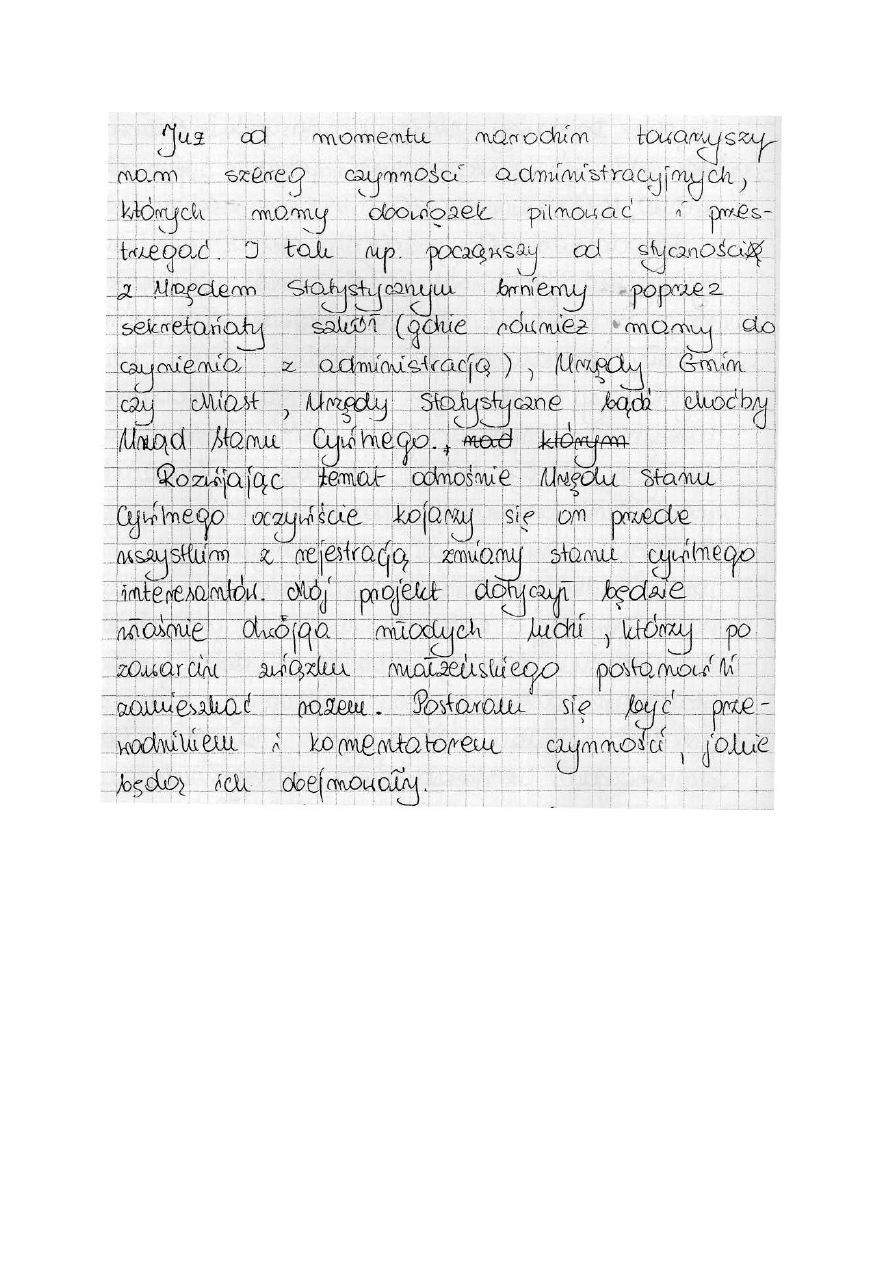 Już od momentu narodzin towarzyszy
nam szereg czynności administracyjnych,
których mamy obowiązek pilnować i przes-
trzegać. I tak np. począwszy od styczności
z Urzędem Statystycznym brniemy poprzez
sekretariaty szkół (gdzie również mamy do
czynienia z administracją), Urzędy Gmin
czy Miast, Urzędy Statystyczne bądź choćby
Urząd Stanu Cywilnego., nad którym
Rozwijając temat odnośnie Urzędu Stanu
Cywilnego oczywiście kojarzy się on przede
wszystkim z rejestracją zmiany stanu cywilnego
interesantów. Mój projekt dotyczył będzie
właśnie dwójga młodych ludzi, którzy po
zawarciu związku małżeńskiego postanowili
zamieszkać razem. Postaram się być prze-
wodnikiem i komentatorem czynności, jakie
będą ich obejmowały.